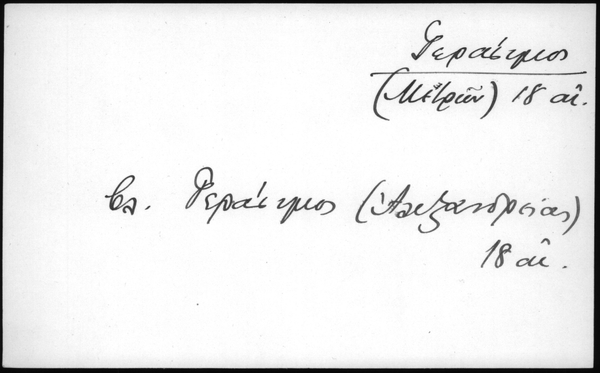 Γεράσιμος
(Μετρῶν) 18 αἰ.
βλ. Γεράσιμος (Ἀλεξανδρείας)
18 αἰ.